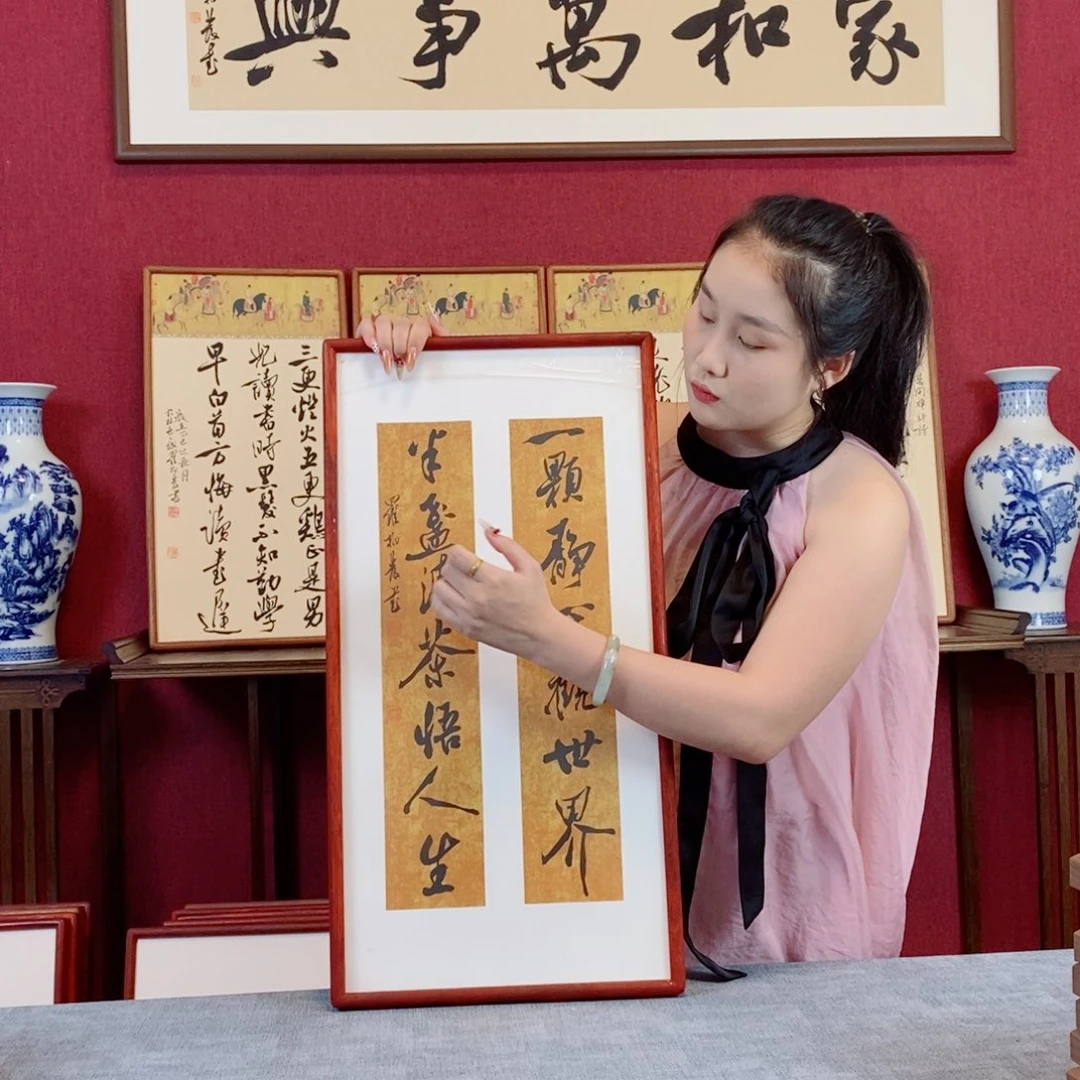 家和萬事興
三更燈火五更鷄正是男
兒讀書時黑髮不知勤學
早白首方悔讀書遲
一顆静心觀世界
半盞清茶悟人生